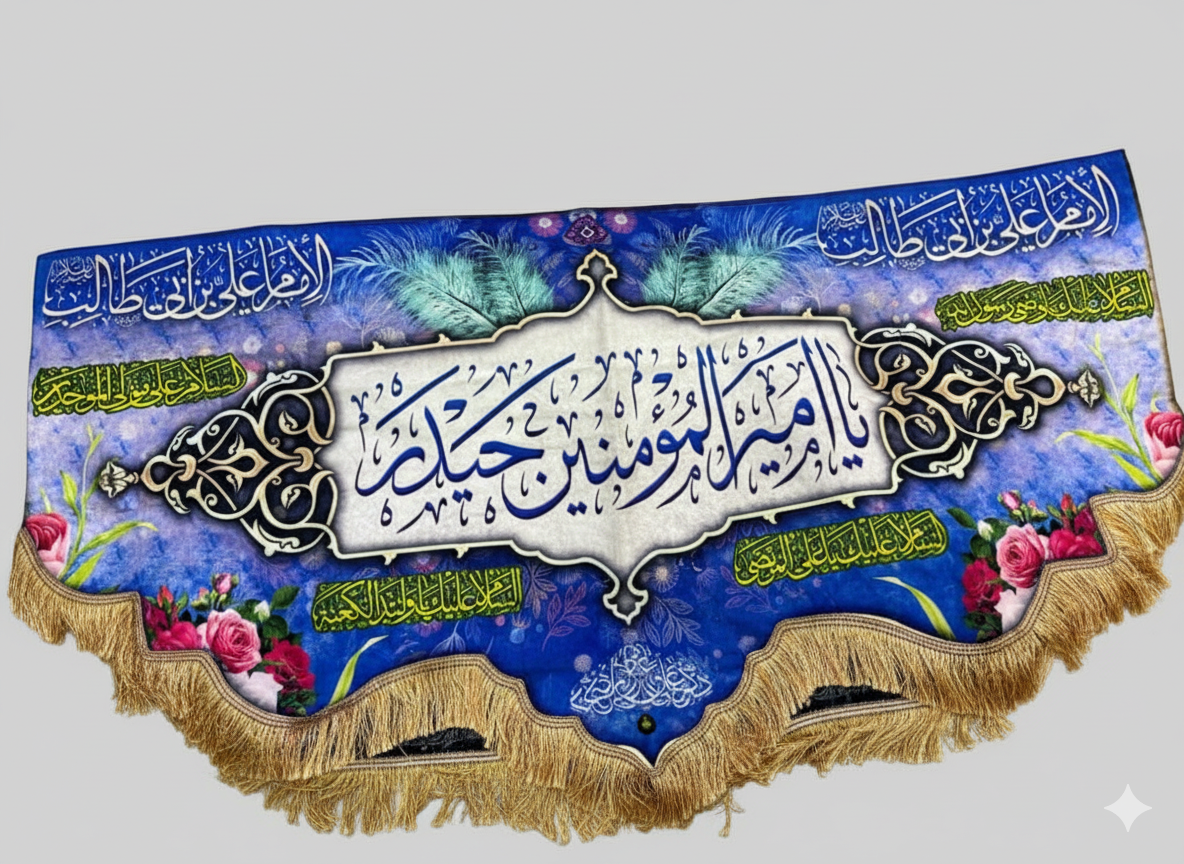 الإمام علي بن أبي طالب عليه السلام
الإمام علي بن أبي طالب عليه السلام
السلام عليك يا وصي رسول الله
السلام على مولى الموحدين
يا أمير المؤمنين حيدر
السلام عليك يا علي المرتضى
السلام عليك يا وليد الكعبة